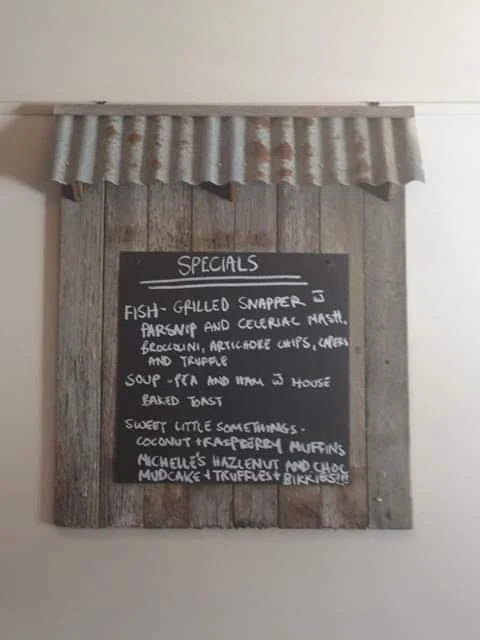 SPECIALS
FISH - GRILLED SNAPPER W̅
PARSNIP AND CELERIAC MASH,
BROCCOLINI, ARTICHOKE CHIPS, CAPERS
AND TRUFFLE
SOUP - PEA AND HAM W̅ HOUSE
BAKED TOAST
SWEET LITTLE SOMETHINGS -
COCONUT + RASPBERRY MUFFINS
MICHELLE'S HAZLENUT AND CHOC
MUDCAKE + TRUFFLES + BIKKIES!!!